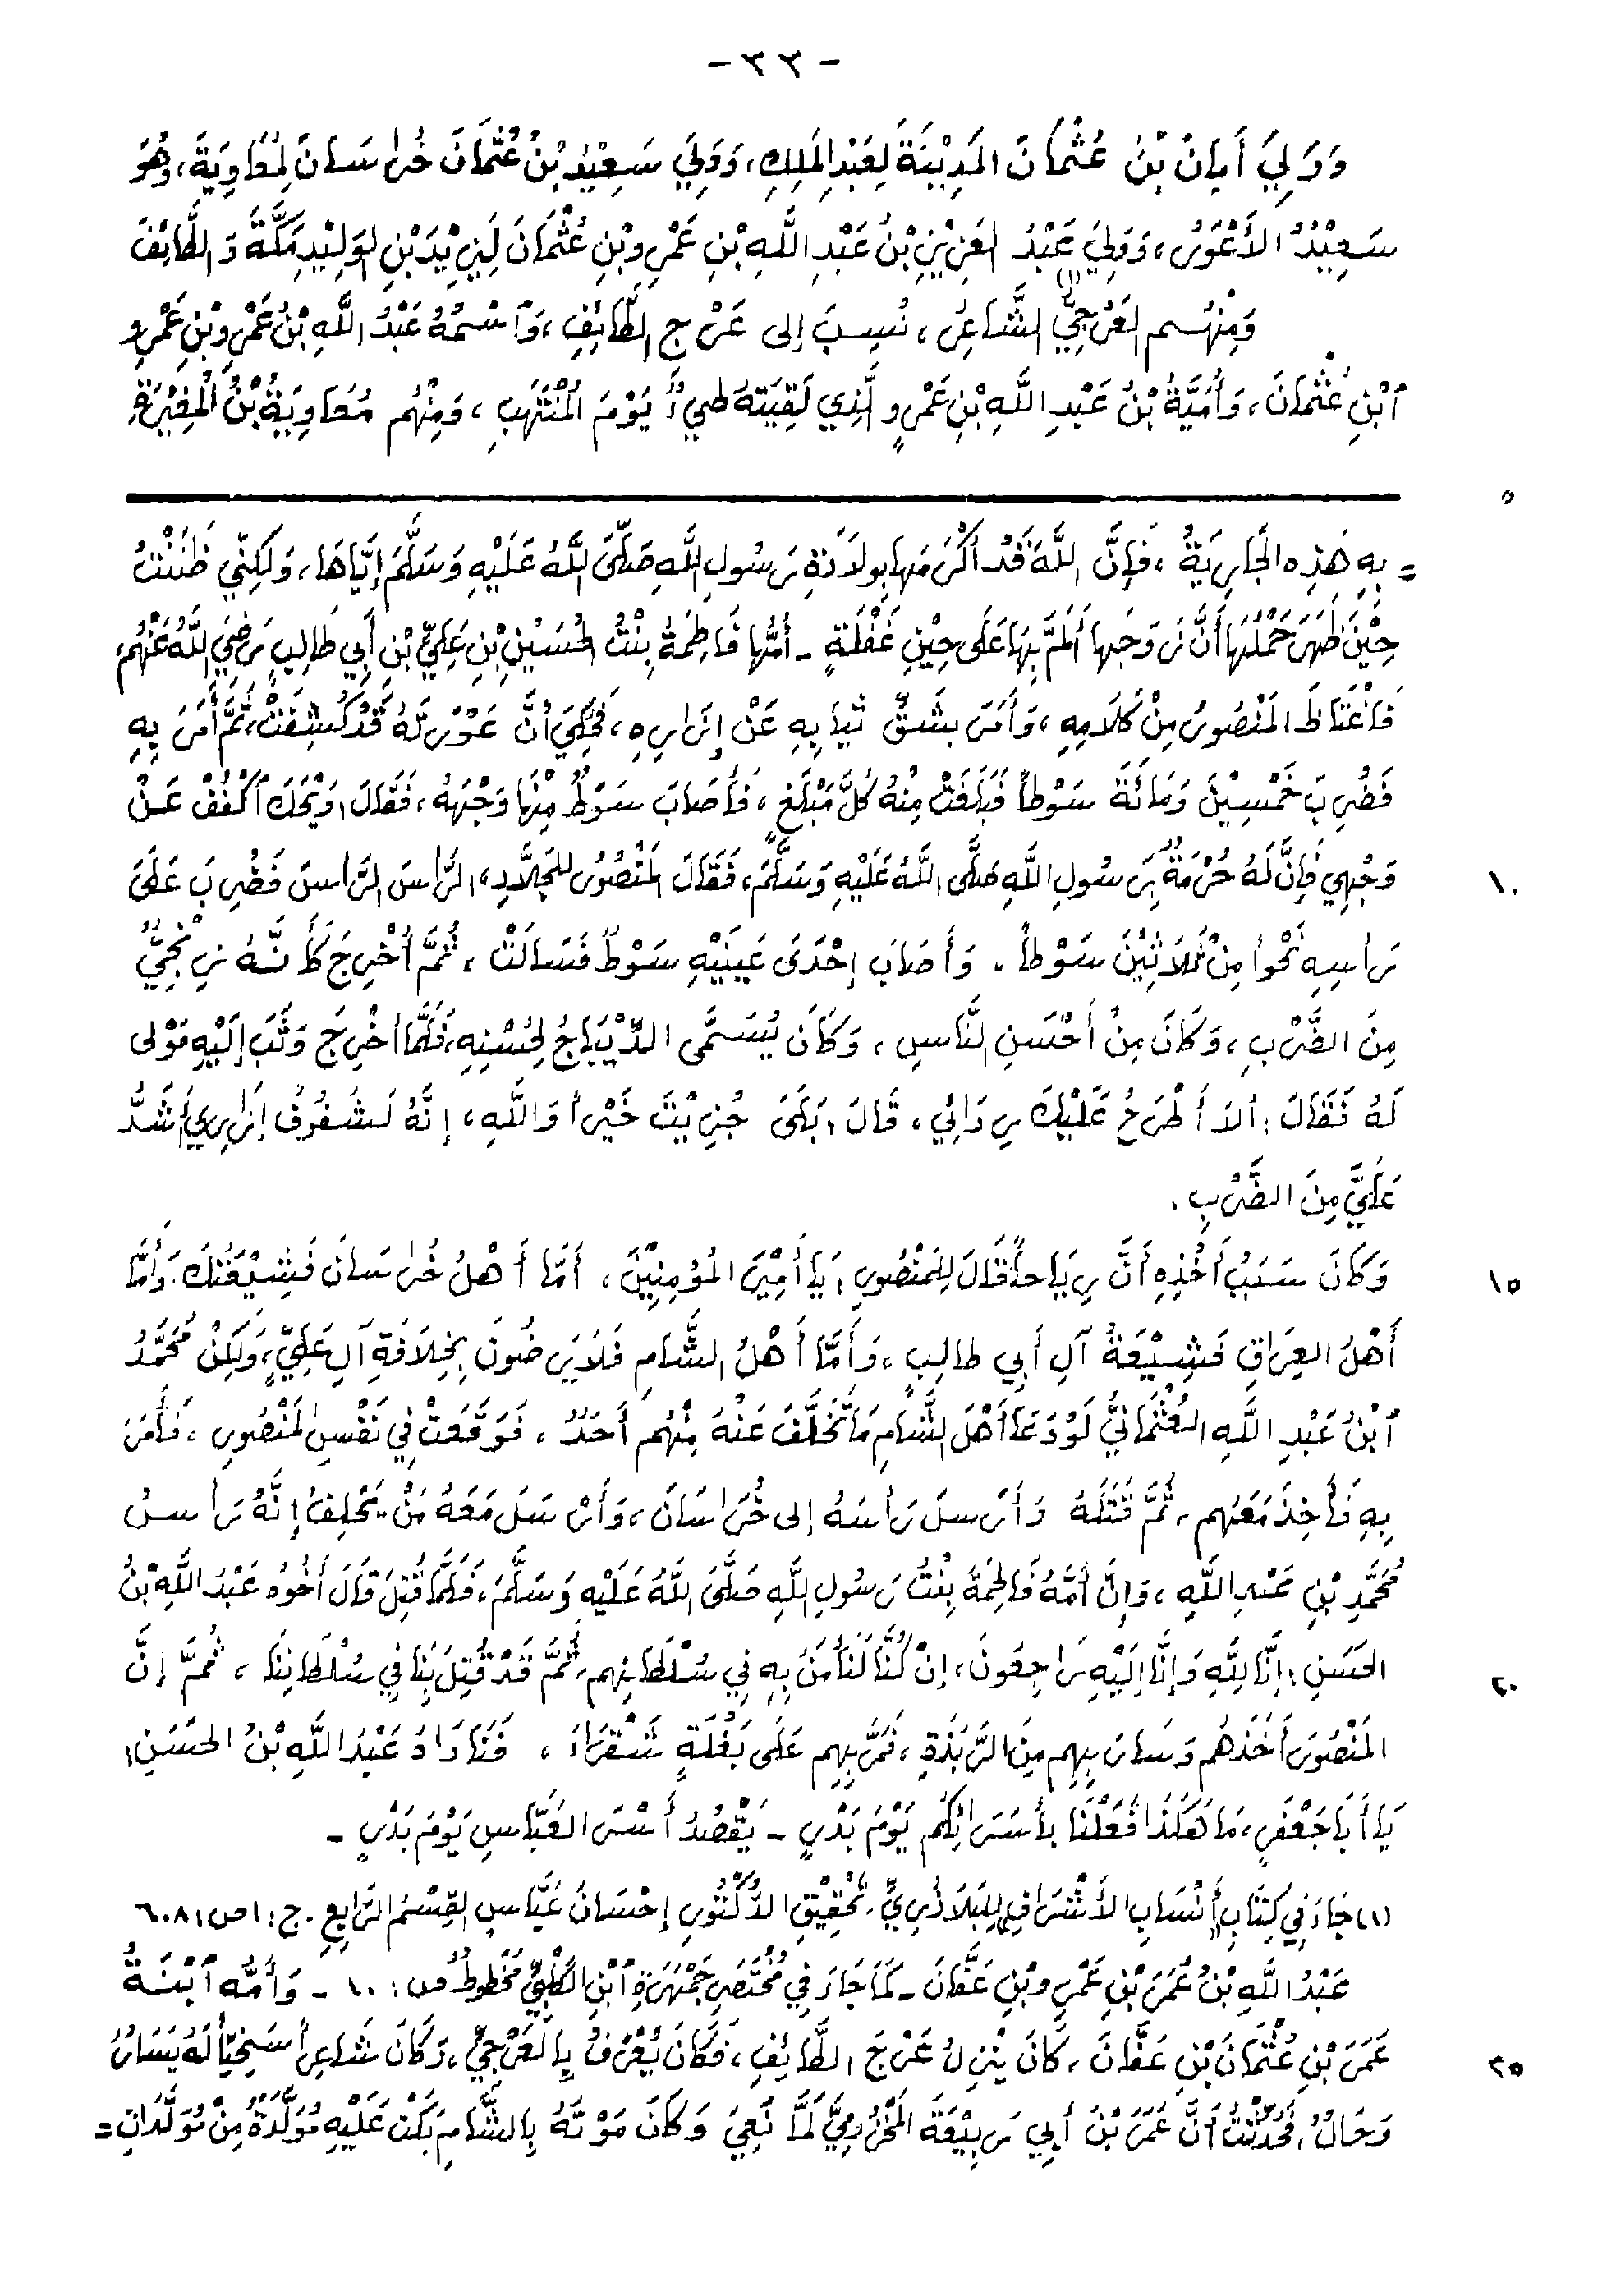 - ٣٣ -
وَوَلِيَ أَبانُ بْنُ عُثْمانَ المَدِيْنَةَ لِعَبْدِ المَلِكِ، وَوَلِيَ سَعِيْدُ بْنُ عُثْمَانَ خُراسَانَ لِمُعَاوِيَةَ، وَهُوَ
سَعِيْدُ الأَعْوَرُ، وَوَلِيَ عَبْدُ العَزِيْزِ بْنُ عَبْدِ اللَّهِ بْنِ عَمْرِو بْنِ عُثْمَانَ لِيَزِيْدَ بْنِ الوَلِيْدِ مَكَّةَ وَالطَّائِفَ
وَمِنْهُم العَرْجِيُّ (١) الشَّاعِرُ، نُسِبَ إلى عَرْجِ الطَّائِفِ، وَٱسْمُهُ عَبْدُ اللَّهِ بْنُ عَمْرِو بْنِ عَمْرِو
ٱبْنِ عُثْمانَ، وَأُمَيَّةُ بْنُ عَبْدِ اللَّهِ بْنِ عَمْرٍو الَّذِي لَقِيَتهُ طيءُ يَوْمَ المُنْتَهَبِ، وَمِنْهُم مُعَاوِيَةُ بْنُ المُغِيْرَةِ
٥
= بِهِ هَذِهِ الجَارِيَةُ، فَإِنَّ اللَّهَ قَدْ أَكْرَمَهَا بِوِلاَدَةِ رَسُولِ اللَّهِ صَلَّىَ اللَّهُ عَلَيْهِ وَسَلَّمَ إِيَّاهَا، وَلَكِنِّي ظَنَنْتُ
حِيْنَ ظَهَرَ حَمْلُهَا أَنَّ زَوَجَها أَلَمَّ بِهَا عَلَى حِيْنِ غَفْلَةٍ - أُمُّها فَاطِمَةُ بِنْتُ الحُسَيْنِ بْنِ عَلِيِّ بْنِ أَبِي طَالِبٍ رَضِيَ اللَّهُ عَنْهُم،
فَاغْتَاظَ المَنْصُورُ مِنْ كَلاَمِهِ، وَأَمَرَ بِشَقِّ ثِيَابِهِ عَنْ إِزَارِهِ، فَحُكِيَ أَنَّ عَوْرَتَهُ قَدْ كُشِفَتْ، ثُمَّ أَمَرَ بِهِ
فَضُرِبَ خَمْسِيْنَ وَمَائَةَ سَوْطاً فَبَلَغَتْ مِنْهُ كُلَّ مَبْلَغٍ، فَأَصَابَ سَوْطٌ مِنْهَا وَجْهَهُ، فَقَالَ: وَيْحَكَ ٱكْفُفْ عَنْ
وَجْهِي فَإِنَّ لَهُ حُرْمَةً بِرَسُولِ اللَّهِ صَلَّى اللَّهُ عَلَيْهِ وَسَلَّمَ، فَقَالَ المَنْصُورُ للجَلاَّدِ: الرَّاسَ الرَّاسَ فَضُرِبَ عَلَىَ
١٠
رَأسِهِ نَحْواً مِنْ ثَلاَثِيْنَ سَوْطاً، وَأَصَابَ إِحْدَىَ عَيْنَيْهِ سَوْطٌ فَسَالَتْ، ثُمَّ أُخْرِجَ كَأَنَّهُ زِنْجِيٌّ
مِنَ الضَّرْبِ، وَكَانَ مِنْ أَحْسَنِ النَّاسِ، وَكَانَ يُسَمَّى الدِّيْبَاجُ لِحُسْنِهِ، فَلَمَّا أُخْرِجَ وَثَبَ إِلَيْهِ مَوْلى
لَهُ فَقَالَ: ألاَ أَطْرَحُ عَلَيْكَ رِدَائِي، قَالَ: بَلَىَ جُزِيْتَ خَيْراً وَاللَّهِ، إِنَّهُ لَشَفُوفُ إِزَارِي أَشَدُّ
عَلَيَّ مِنَ الضَّرْبِ.
وَكَانَ سَبَبُ أَخْذِهِ أَنَّ رِيَاحاً قَالَ لِلمَنْصُورِ: يَا أَمِيْرَ المُؤمِنِيْنَ، أَمَّا أَهْلُ خُراسَانَ فَشِيْعَتُكَ، وَأَمَّا
١٥
أَهْلُ العِرَاقِ فَشِيْعَةُ آلِ أَبِي طالِبٍ، وَأَمَّا أَهْلُ الشَّامِ فَلاَ يَرضُونَ بِخِلاَفَةِ آلِ عَلِيٍّ، وَلَكِنْ مُحَمَّدُ
ٱبْنُ عَبْدِ اللَّهِ العُثْمَانِيُّ لَوْ دَعَا أَهْلَ الشَّامِ مَا تَخَلَّفَ عَنْهُ مِنْهُم أَحَدٌ، فَوَقَعَتْ فِي نَفْسِ المَنْصُورِ، فَأَمَرَ
بِهِ فَأُخِذَ مَعَهُم، ثُمَّ قَتَلَهُ وَأَرْسَلَ رَأسَهُ إلى خُرَاسَانَ، وَأَرْسَلَ مَعَهُ مَنْ يَحْلِفُ إِنَّهُ رَأسُ
مُحَمَّدِ بْنِ عَبْدِ اللَّهِ، وَإِنَّ أُمَّهُ فَاطِمَةُ بِنْتُ رَسُولِ اللَّهِ صَلَّىَ اللَّهُ عَلَيْهِ وَسَلَّمَ، فَلَمَّا قُتِلَ قَالَ أَخُوهُ عَبْدُ اللَّهِ بْنُ
الحَسَنِ: إِنَّا لِلَّهِ وَإِنَّا إِلَيْهِ رَاجِعُونَ، إِنْ كُنَّا لَنَأمَنُ بِهِ فِي سُلْطَانِهِم، ثُمَّ قَدْ قُتِلَ بِنَا فِي سُلْطَانِنَا، ثُمَّ إِنَّ
٢٠
المَنْصُورَ أَخَذَهُم وَسَارَ بِهِم مِنَ الرَّبَذَةِ، فَمَرَّ بِهِم عَلَى بَغْلَةٍ شَقْرَاءَ، فَنَادَاهُ عَبْدُ اللَّهِ بْنُ الحَسَنِ:
يَا أَبَا جَعْفَرٍ، مَا هَكَذَا فَعَلْنَا بأَسَرَائِكُم يَوْمَ بَدْرٍ - يَقْصُدُ أَسْرَ العَبَّاسِ يَوْمَ بَدْرٍ -
(١) جَاءَ فِي كِتَابِ أَنْسَابِ الأَشْرَافِ لِلبَلاَذُرِيِّ، تَحْقِيْقِ الدُّكْتُورِ إِحْسَانَ عَبَّاسٍ القِسْمُ الرَّابِعِ. ج: ١ ص: ٦٠٨
عَبْدُ اللَّهِ بْنُ عُمَرَ بْنِ عَمْرِو بْنِ عَفَّانَ - كَمَا جَاءَ فِي مُخْتَصَرِ جَمْهَرَةِ ٱبْنِ الكَلْبِيِّ مَخْطُوطُ ص: ١٠ - وَأُمُّهُ ٱبْنَةُ
عُمَرَ بْنِ عُثْمَانَ بْنِ عَفَّانَ، كَانَ يَنْزِلُ عَرْجَ الطَّائِفِ، فَكَانَ يُعْرَفُ بِالعَرْجِيِّ، وَكَانَ شَاعِراً سَخِيّاً لَهُ يَسَارٌ
٢٥
وَحَالٌ، فَحُدِّثْتُ أَنَّ عُمَرَ بْنَ أَبِي رَبِيْعَةَ المَخْزُومِيَّ لَمَّا نُعِيَ وَكَانَ مَوْتُهُ بِالشَّامِ بَكَتْ عَلَيْهِ مُوَلَّدَةٌ مِنْ مُوَلَّدَاتِ =